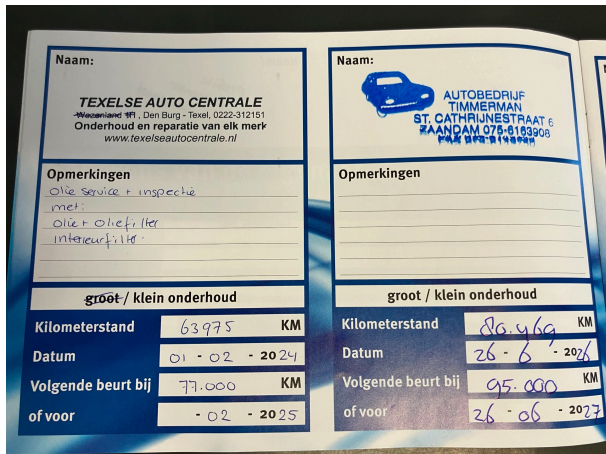 Naam:
TEXELSE AUTO CENTRALE
, Den Burg - Texel, 0222-312151
Onderhoud en reparatie van elk merk
www.texelseautocentrale.nl
Opmerkingen
olie service + inspectie
met:
olie + oliefilter
interieurfilter.
groot / klein onderhoud
Kilometerstand 63975 KM
Datum 01 - 02 - 2024
Volgende beurt bij 77.000 KM
of voor - 02 - 2025
Naam:
AUTOBEDRIJF
TIMMERMAN
ST. CATHRIJNESTRAAT 6
ZAANDAM 075-6163908
Opmerkingen
groot / klein onderhoud
Kilometerstand 80.969 KM
Datum 26 - 6 - 2026
Volgende beurt bij 95.000 KM
of voor 26 - 06 - 2027